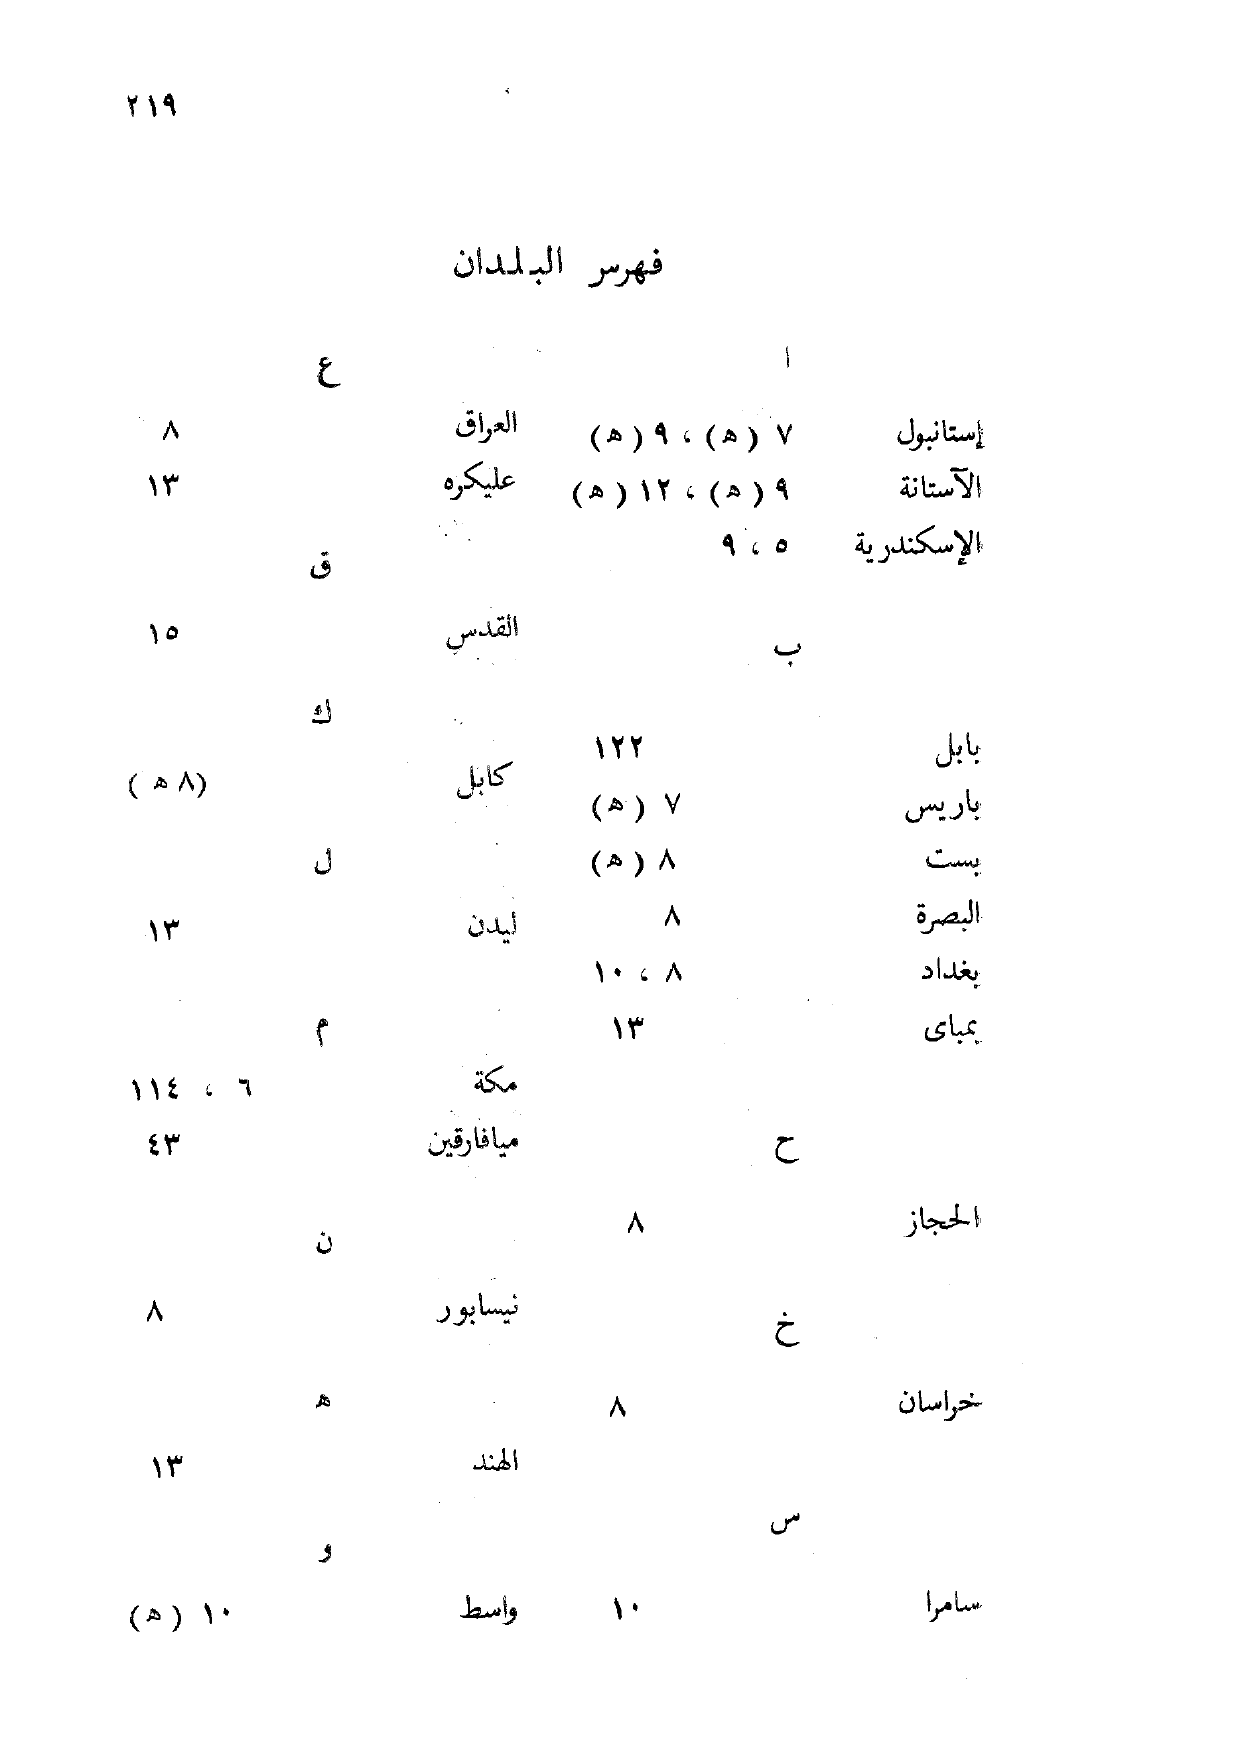 ٢١٩
فهرس البلدان
ا
إستانبول ٧ (ه) ، ٩ (ه)
الآستانة ٩ (ه) ، ١٢ (ه)
الإسكندرية ٥ ، ٩
ب
بابل ١٢٢
باريس ٧ (ه)
بست ٨ (ه)
البصرة ٨
بغداد ٨ ، ١٠
بمباى ١٣
ح
الحجاز ٨
خ
خراسان ٨
س
سامرا ١٠
ع
العراق ٨
عليكره ١٣
ق
القدس ١٥
ك
كابل (٨ ه)
ل
ليدن ١٣
م
مكة ٦ ، ١١٤
ميافارقين ٤٣
ن
نيسابور ٨
ه
الهند ١٣
و
واسط ١٠ (ه)